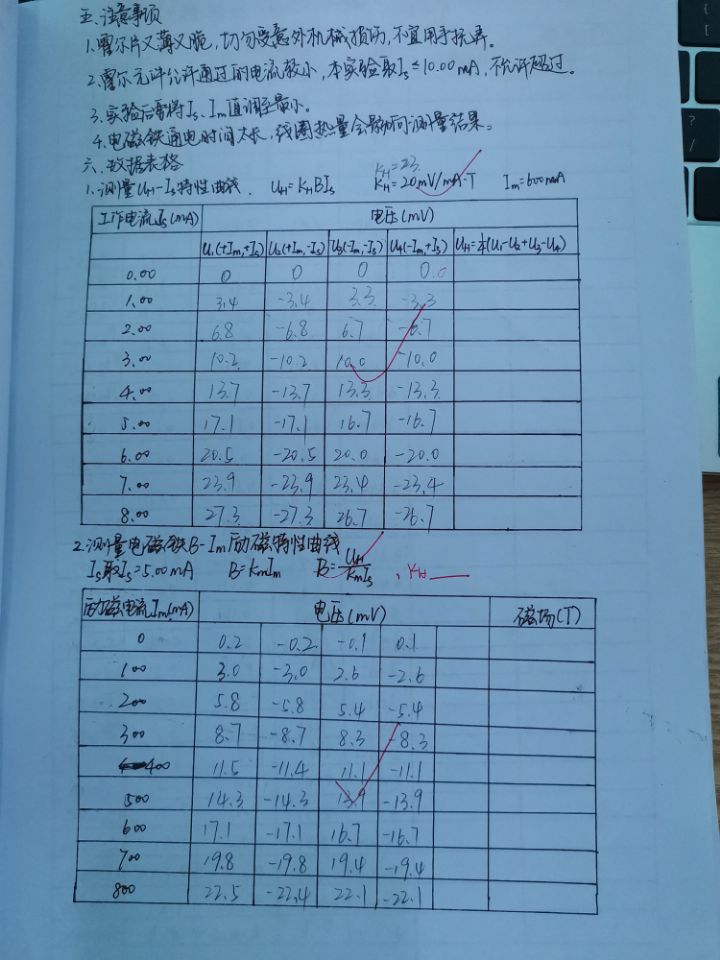 五、注意事项
1.霍尔片又薄又脆,切勿受意外机械损伤,不宜用手抚弄。
2.霍尔元件允许通过的电流较小,本实验取Is≤10.00mA,不允许超过。
3.实验后需将Is、Im值调至最小。
4.电磁铁通电时间太长,线圈热量会影响测量结果。
六、数据表格
KH=23
1.测量UH-Is特性曲线. UH=KHBIs KH=20mV/mA·T Im=600mA
工作电流Is(mA) 电压(mV)
U1(+Im,+Is) U2(+Im,-Is) U3(-Im,-Is) U4(-Im,+Is) UH=¼(U1-U2+U3-U4)
0.00 0 0 0 0.0
1.00 3.4 -3.4 3.3 -3.3
2.00 6.8 -6.8 6.7 -6.7
3.00 10.2 -10.2 10.0 -10.0
4.00 13.7 -13.7 13.3 -13.3
5.00 17.1 -17.1 16.7 -16.7
6.00 20.5 -20.5 20.0 -20.0
7.00 23.9 -23.9 23.4 -23.4
8.00 27.3 -27.3 26.7 -26.7
2.测量电磁铁B-Im励磁特性曲线
Is取Is=5.00mA B=KmIm B=UH/KmIs , KH
励磁电流Im(mA) 电压(mV) 磁场(T)
0 0.2 -0.2 -0.1 0.1
100 3.0 -3.0 2.6 -2.6
200 5.8 -5.8 5.4 -5.4
300 8.7 -8.7 8.3 -8.3
400 11.5 -11.4 11.1 -11.1
500 14.3 -14.3 13.9 -13.9
600 17.1 -17.1 16.7 -16.7
700 19.8 -19.8 19.4 -19.4
800 22.5 -22.4 22.1 -22.1